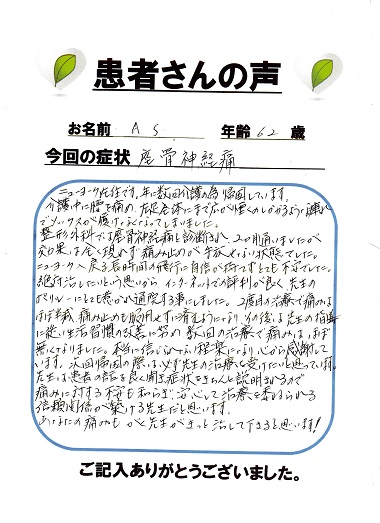 患者さんの声
お名前 A S. 年齢 62 歳
今回の症状 座骨神経痛
ニューヨーク在住です。年に数回介護の為帰国しています。
介護中に腰を痛め、左足全体にまで
でソックスが履けなくなってしまいました。
整形外科では座骨神経痛と診断され、2ヶ月通いましたが
効果は全く現れず痛み止めが手放せない状態でした。
ニューヨークへ戻る長時間の飛行に自信が持てずとても不安でした。
絶対治したいという思いから、インターネットでの評判が良く、先生の
ポリシーにとても惹かれ通院する事にしました。2度目の治療で痛みは
ほぼ半減、痛み止めも服用せずに済むようになり、その後は先生の指導
に従い生活習慣の改善に努め数回の治療で痛みはほぼ
無くなりました。本当に信じられない程楽になり心から感謝して
います。次回帰国の際は必ず先生の治療を受けたいと思っています。
先生は患者の話を良く聞き症状をきちんと説明されるので
痛みに対する不安も和らぎ、安心して治療を委ねられる
信頼関係が築ける先生だと思います。
あなたの痛みも きっと先生がきっと治して下さると思います!
ご記入ありがとうございました。